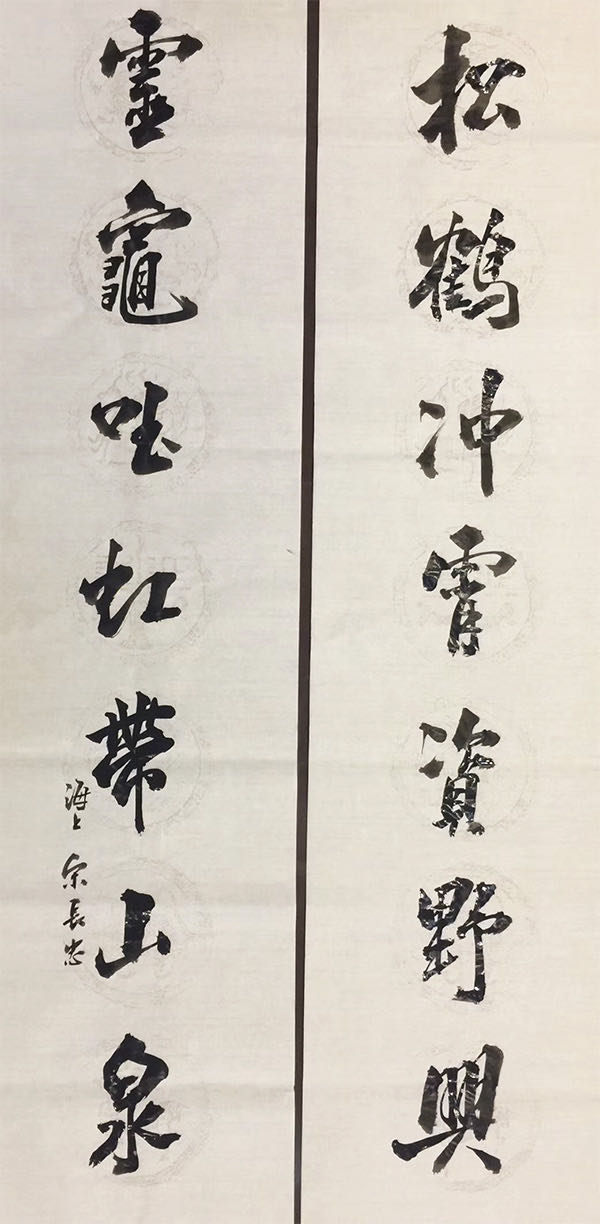 松鶴冲霄資野興
靈竈吐虹帶山泉
海上 宋長忠